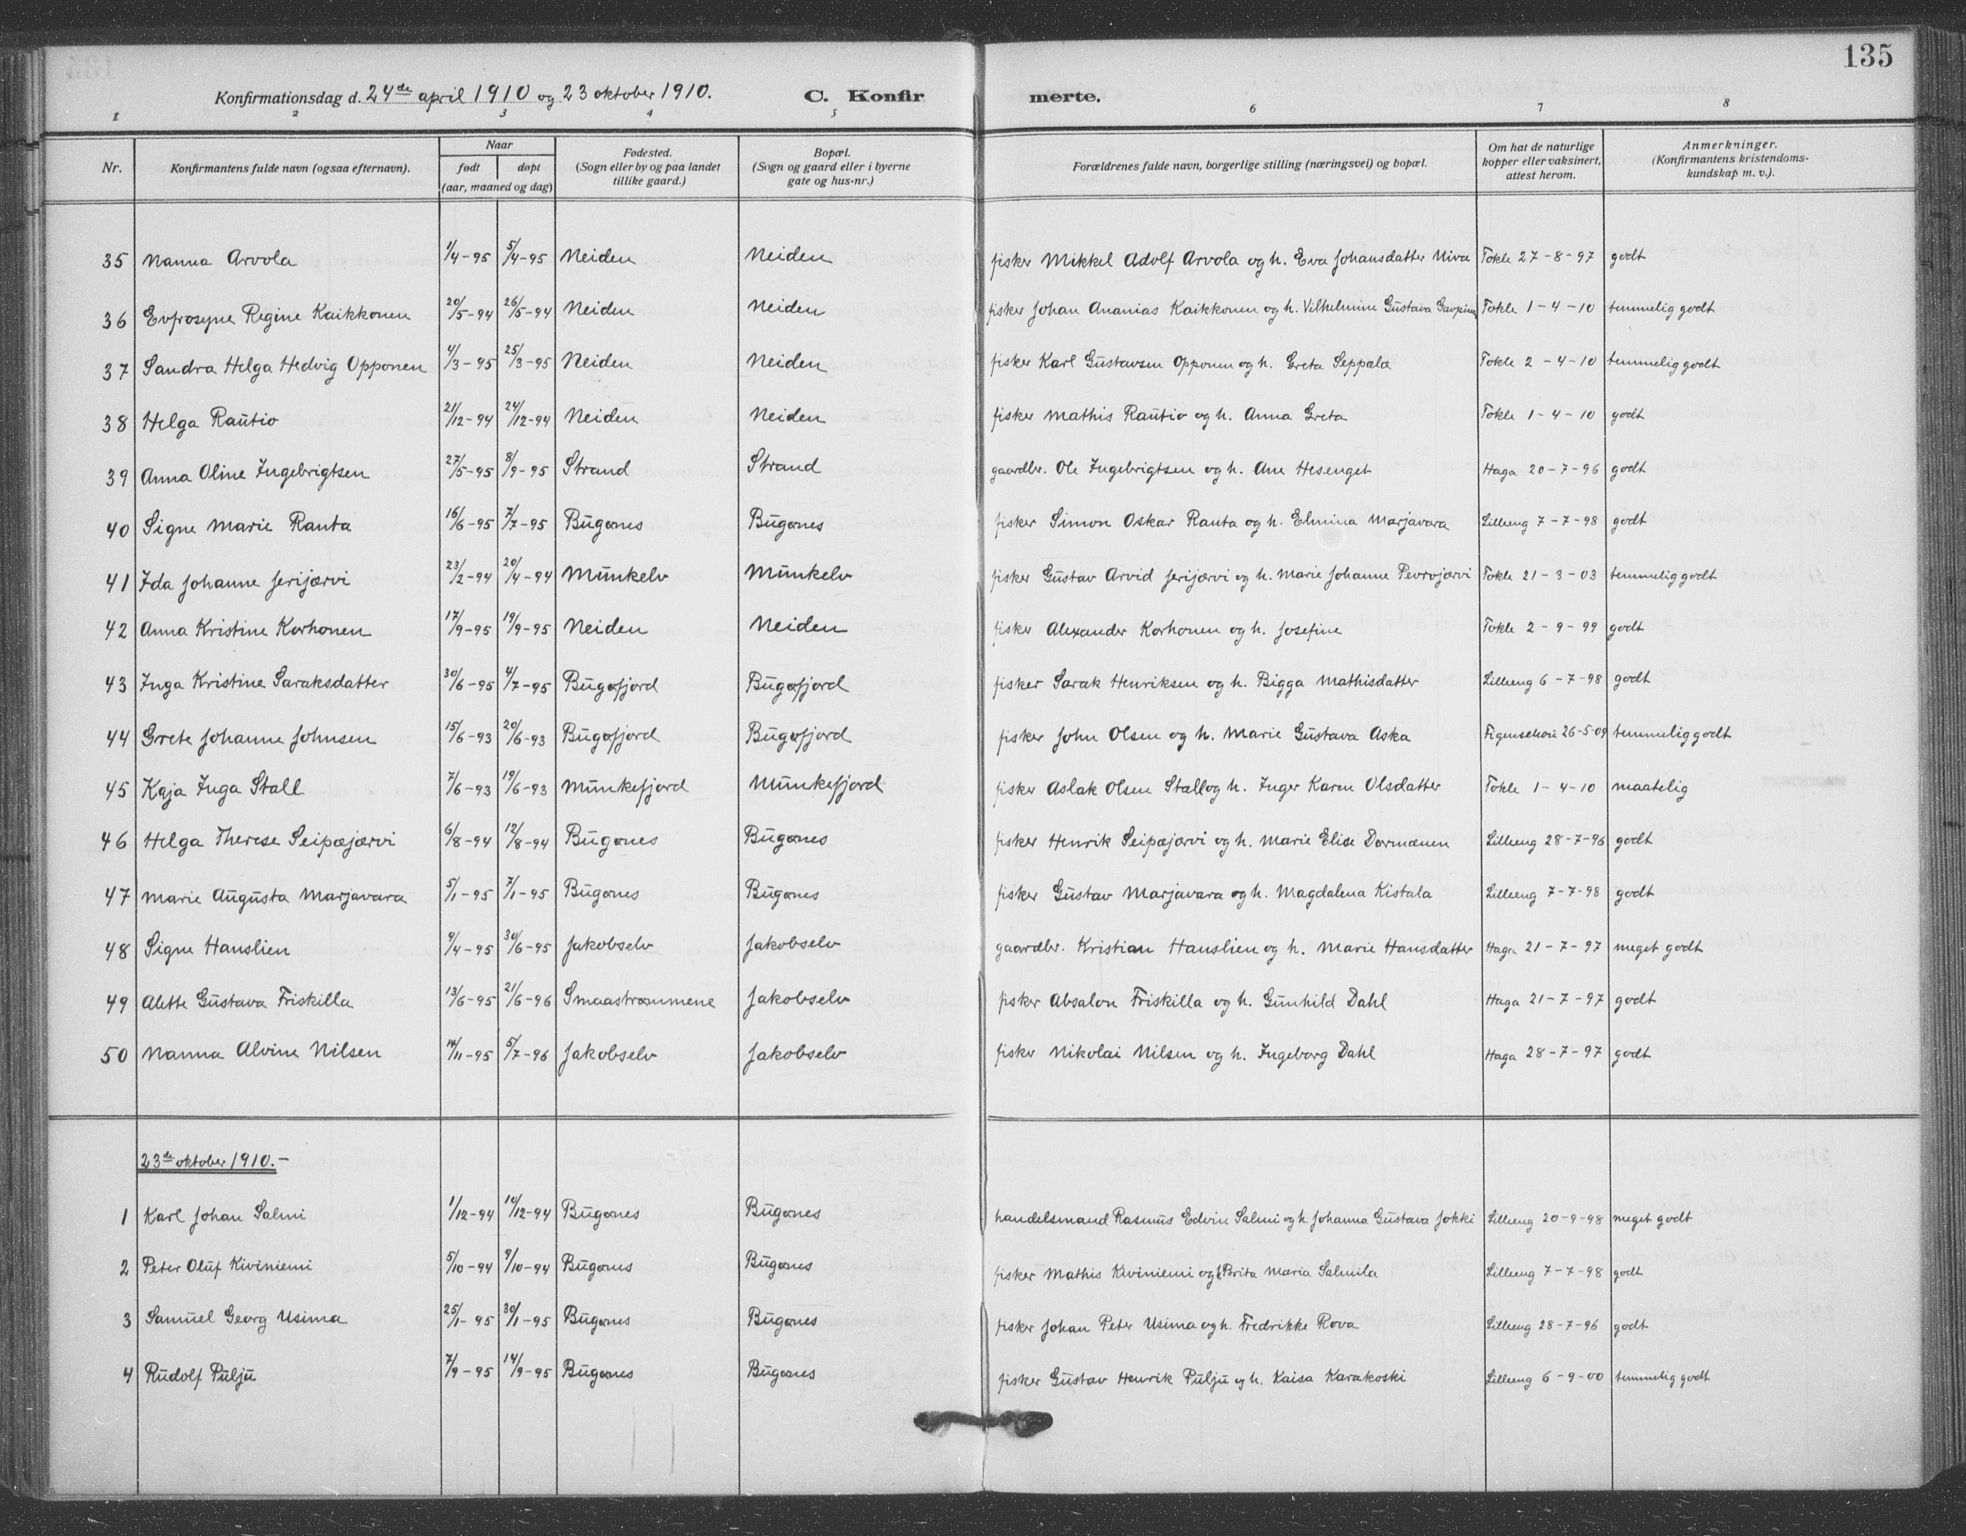 135
Konfirmationsdag d. 24de april 1910 og 23 oktober 1910. C. Konfirmerte.
1 2 3 4 5 6 7 8
Nr. Konfirmantens fulde navn (ogsaa efternavn). Naar født døpt (aar, maaned og dag) Fødested. (Sogn eller by og paa landet tillike gaard.) Bopæl. (Sogn og gaard eller i byerne gate og hus-nr.) Forældrenes fulde navn, borgerlige stilling (næringsvei) og bopæl. Om hat de naturlige kopper eller vaksinert, attest herom. Anmerkninger. (Konfirmantens kristendoms-kundskap m. v.).
35 Nanna Arvola 1/4-95 5/4-95 Neiden Neiden fisker Mikkel Adolf Arvola og h. Eva Johansdatter Niva Tokle 27-8-97 godt
36 Evfrosyne Regine Kaikkonen 20/5-94 26/5-94 Neiden Neiden fisker Johan Ananias Kaikkonen og h. Vilhelmine Gustava Tokle 1-4-10 temmelig godt
37 Sandra Helga Hedvig Opponen 4/3-95 25/3-95 Neiden Neiden fisker Karl Gustavsen Opponen og h. Greta Seppala Tokle 2-4-10 temmelig godt
38 Helga Rautio 21/12-94 24/12-94 Neiden Neiden fisker Mathis Rautio og h. Anna Greta Tokle 1-4-10 godt
39 Anna Oline Ingebrigtsen 27/5-95 8/9-95 Strand Strand gaardbr. Ole Ingebrigtsen og h. Ane Hesenget Haga 20-7-96 godt
40 Signe Marie Ranta 16/6-95 7/7-95 Bugønes Bugønes fisker Simon Oskar Ranta og h. Elmina Marjavara Lilleeng 7-7-98 godt
41 Ida Johanne Jerijærvi 23/2-94 20/4-94 Munkelv Munkelv fisker Gustav Arvid Jerijærvi og h. Marie Johanne Pevrojærvi Tokle 21-3-03 temmelig godt
42 Anna Kristine Korhonen 17/9-95 19/9-95 Neiden Neiden fisker Alexander Korhonen og h. Josefine Tokle 2-9-99 godt
43 Inga Kristine Saraksdatter 30/6-95 4/7-95 Bugøfjord Bugøfjord fisker Sarak Henriksen og h. Bigga Mathisdatter Lilleeng 6-7-98 godt
44 Grete Johanne Johnsen 15/6-93 20/6-93 Bugøfjord Bugøfjord fisker John Olsen og h. Marie Gustava Aska Figenschou 26-5-09 temmelig godt
45 Kaja Inga Stall 7/6-93 19/6-93 Munkefjord Munkefjord fisker Aslak Olsen Stall og h. Inger Karen Olsdatter Tokle 1-4-10 maatelig
46 Helga Therese Seipæjærvi 6/8-94 12/8-94 Bugønes Bugønes fisker Henrik Seipæjærvi og h. Marie Elise Dormænen Lilleeng 28-7-96 godt
47 Marie Augusta Marjavara 5/1-95 7/1-95 Bugønes Bugønes fisker Gustav Marjavara og h. Magdalena Kistala Lilleeng 7-7-98 godt
48 Signe Hanslien 9/4-95 30/6-95 Jakobselv Jakobselv gaardbr. Kristian Hanslien og h. Marie Hansdatter Haga 21-7-97 meget godt
49 Alette Gustava Friskilla 13/6-95 21/6-96 Smaastrømmene Jakobselv fisker Absalon Friskilla og h. Gunhild Dahl Haga 21-7-97 godt
50 Nanna Alvine Nilsen 14/11-95 5/7-96 Jakobselv Jakobselv fisker Nikolai Nilsen og h. Ingeborg Dahl Haga 28-7-97 godt
23de oktober 1910.-
1 Karl Johan Salmi 1/12-94 10/12-94 Bugønes Bugønes handelsmand Rasmus Edvin Salmi og h. Johanna Gustava Jokki Lilleeng 20-9-98 meget godt
2 Peter Oluf Kiviniemi 5/10-94 9/10-94 Bugønes Bugønes fisker Mathis Kiviniemi og h. Brita Maria Salmila Lilleeng 7-7-98 godt
3 Samuel Georg Usima 25/1-95 30/1-95 Bugønes Bugønes fisker Johan Peter Usima og h. Fredrikke Rova Lilleeng 28-7-96 godt
4 Rudolf Pulju 7/9-95 14/9-95 Bugønes Bugønes fisker Gustav Henrik Pulju og h. Kaisa Karakoski Lilleeng 6-9-00 temmelig godt